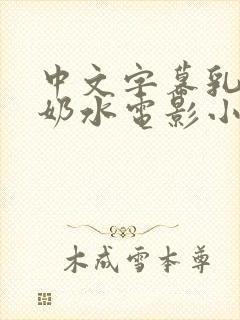 中文字幕乳
奶水电影小
木成雪本尊